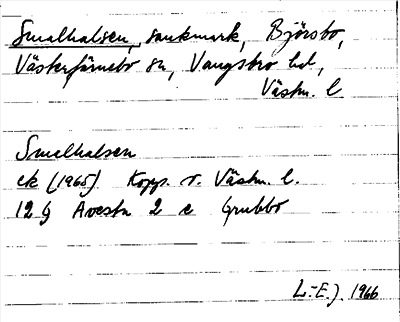 Smalhalsen, sankmark, Björsbo,
Västerfärnebo sn, Vangsbro hd,
Västm. l
Smalhalsen
ek (1965) Kopp. o. Västm. l.
12 G Avesta 2 e Grubbo
L.-E. J. 1966